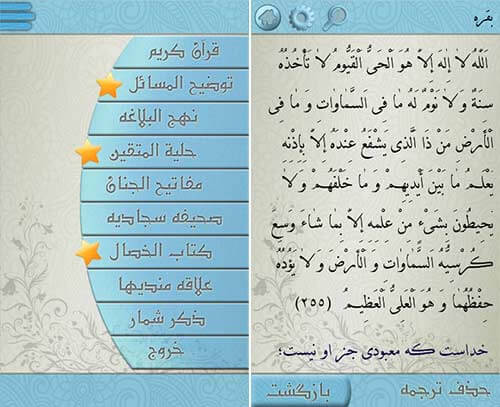 قرآن کریم
توضیح المسائل
نهج البلاغه
حلیة المتقین
مفاتیح الجنان
صحیفه سجادیه
کتاب الخصال
علاقه مندیها
ذکر شمار
خروج
بقره
اَللّهُ لا إِلهَ إِلاَّ هُوَ الْحَیُّ الْقَیُّومُ لا تَأْخُذُهُ
سِنَةٌ وَ لا نَوْمٌ لَهُ ما فِی السَّماواتِ وَ ما فِی
الْأَرْضِ مَنْ ذَا الَّذی یَشْفَعُ عِنْدَهُ إِلاَّ بِإِذْنِهِ
یَعْلَمُ ما بَیْنَ أَیْدیهِمْ وَ ما خَلْفَهُمْ وَ لا
یُحیطُونَ بِشَیْ‏ءٍ مِنْ عِلْمِهِ إِلاَّ بِما شاءَ وَسِعَ
کُرْسِیُّهُ السَّماواتِ وَ الْأَرْضَ وَ لا یَؤُدُهُ
حِفْظُهُما وَ هُوَ الْعَلِیُّ الْعَظیمُ (۲۵۵)
خداست که معبودی جز او نیست؛
حذف ترجمه
بازگشت